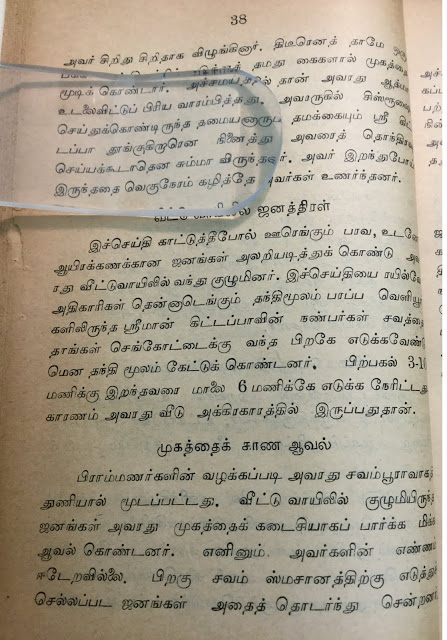 38
அவர் சிறிது சிறிதாக விழுங்கினார். திடீரெனத் தாமே
தமது கைகளால் முகத்தை
மூடிக் கொண்டார். அச்சமயத்தில் தான் அவரது
உடலைவிட்டுப் பிரிய வாரம்பித்தது. அவருகில்
செய்துக்கொண்டிருந்த தமையனாரும் தமக்கையும் ஸ்ரீ கிட்
டப்பா தூங்குகிறாரென நினைத்து அவரைத் தொந்திர
செய்யக்கூடாதென சும்மா விருந்தனர். அவர் இறந்துபோ
இருந்ததை வெகுநேரம் கழித்தே அவர்கள் உணர்ந்தனர்.
வீட்டு வாயிலில் ஜனத்திரள்
இச்செய்தி காட்டுத்தீபோல் ஊரெங்கும் பரவ, உடனே
ஆயிரக்கணக்கான ஜனங்கள் அலறியடித்துக் கொண்டு அவ
ரது வீட்டுவாயிலில் வந்து குழுமினர். இச்செய்தியை ரயில்வே
அதிகாரிகள் தென்னாடெங்கும் தந்திமூலம் பரப்ப வெளியூர்
களிலிருந்த ஸ்ரீமான் கிட்டப்பாவின் நண்பர்கள் சவத்தை
தாங்கள் செங்கோட்டைக்கு வந்த பிறகே எடுக்கவேண்டு
மென தந்தி மூலம் கேட்டுக் கொண்டனர். பிற்பகல் 3-10
மணிக்கு இறந்தவரை மாலை 6 மணிக்கே எடுக்க நேரிட்டது
காரணம் அவரது வீடு அக்கிரகாரத்தில் இருப்பதுதான்.
முகத்தைக் காண ஆவல்
பிராம்மணர்களின் வழக்கப்படி அவரது சவம்பூராவாகத்
துணியால் மூடப்பட்டது. வீட்டு வாயிலில் குழுமியிருந்த
ஜனங்கள் அவரது முகத்தைக் கடைசியாகப் பார்க்க மிக்க
ஆவல் கொண்டனர். எனினும் அவர்களின் எண்ணம்
ஈடேறவில்லை. பிறகு சவம் ஸ்மசானத்திற்கு எடுத்துச்
செல்லப்பட ஜனங்கள் அதைத் தொடர்ந்து சென்றனர்